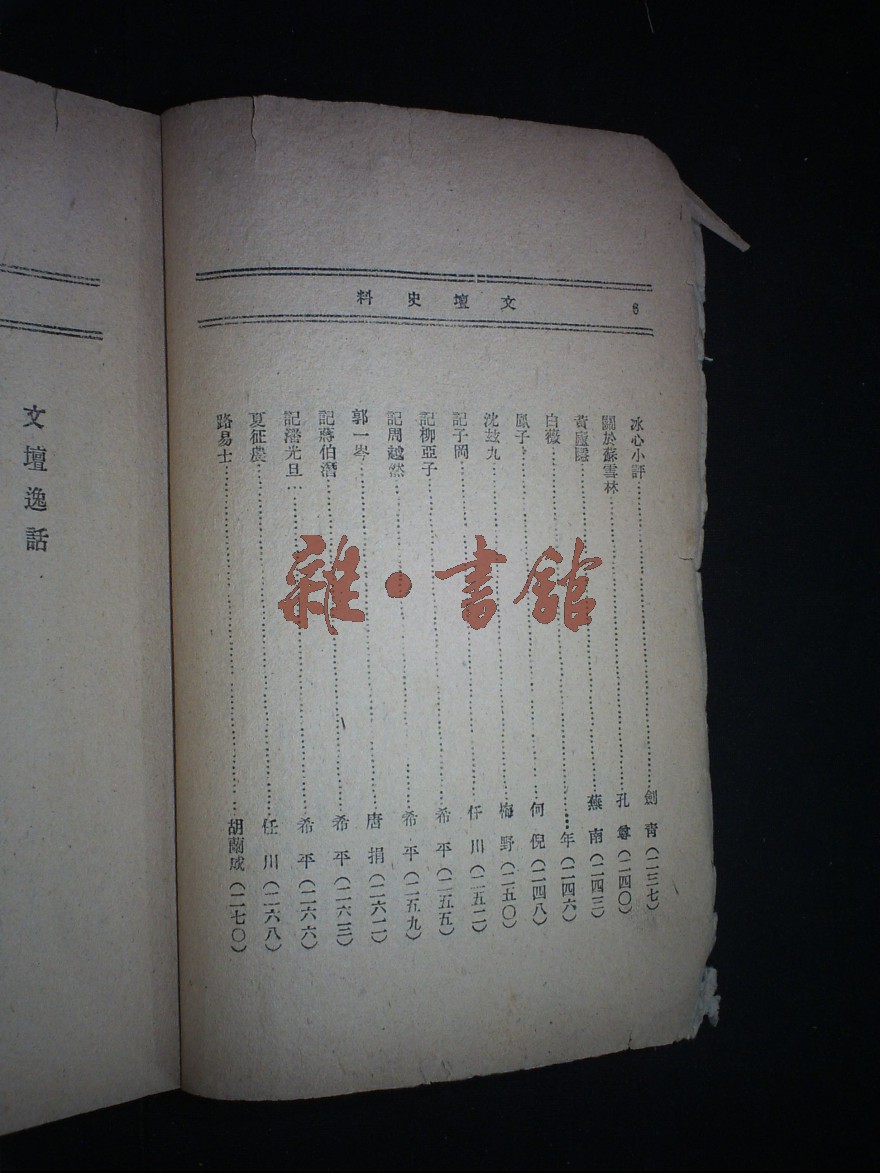 文壇史料
6
冰心小評……劍青(二三七)
關於蘇雪林……孔尊(二四〇)
黃廬隱……蕪南(二四三)
白薇……年(二四六)
鳳子……何倪(二四八)
沈茲九……梅野(二五〇)
記子岡……任川(二五二)
記柳亞子……希平(二五五)
記周越然……希平(二五九)
郭一岑……唐捐(二六一)
記蔣伯潛……希平(二六三)
記潘光旦……希平(二六六)
夏征農……任川(二六八)
路易士……胡蘭成(二七〇)
文壇逸話
雜·書館